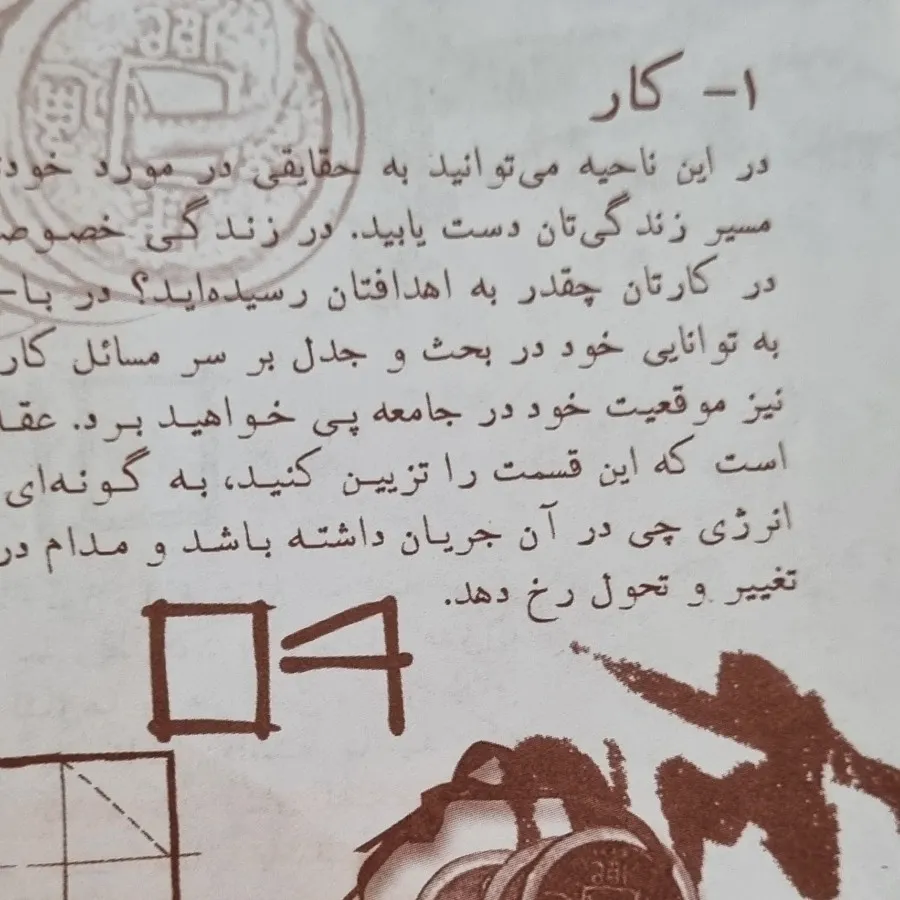 ۱- کار
در این ناحیه می‌توانید به حقایقی در مورد
مسیر زندگی‌تان دست یابید. در زندگی
در کارتان چقدر به اهدافتان رسیده‌اید؟ در
به توانایی خود در بحث و جدل بر سر مسائل
نیز موقعیت خود در جامعه پی خواهید برد.
است که این قسمت را تزیین کنید، به گونه‌ای
انرژی چی در آن جریان داشته باشد و مدام در
تغییر و تحول رخ دهد.